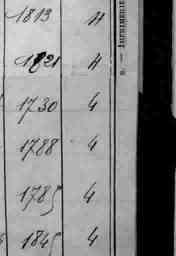 1813 4
1821 4
1730 4
1788 4
1785 4
1845 4
— IMPRIMERIE